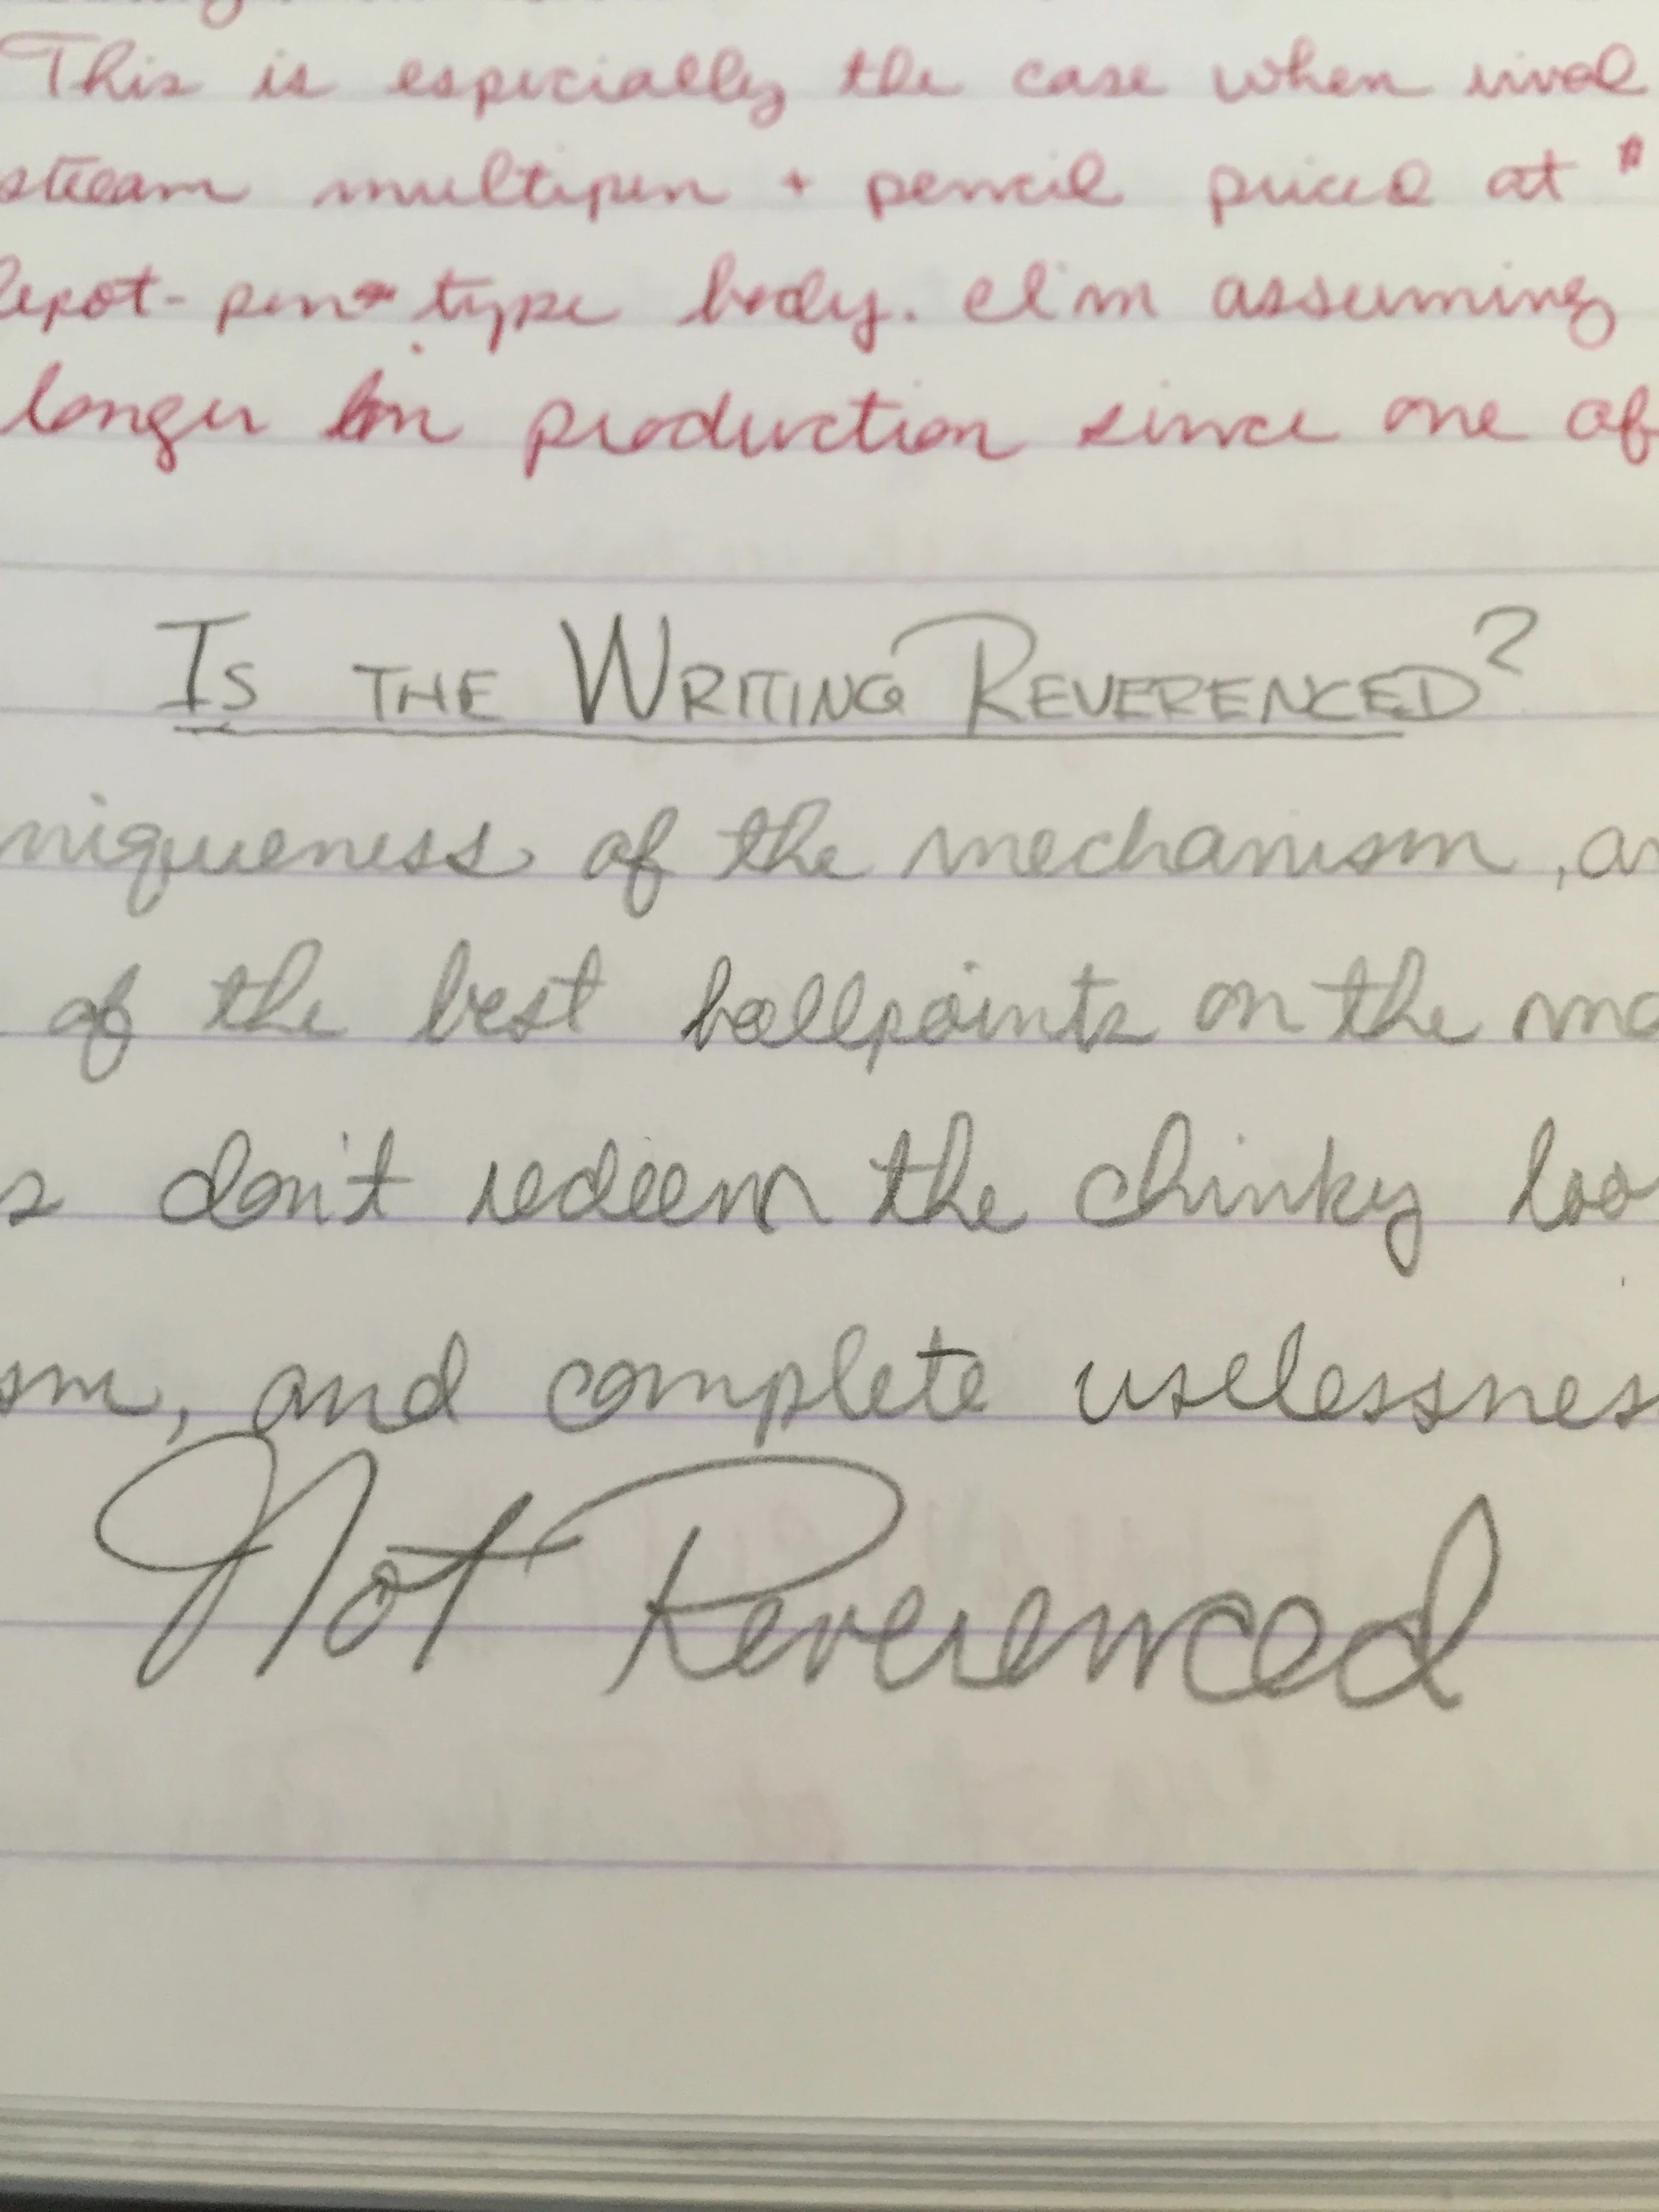 This is especially the case when rival
stream multipen + pencil priced at $
depot-pen type body. I'm assuming
longer in production since one of
IS THE WRITING REVERENCED?
niqueness of the mechanism, an
of the best ballpoints on the ma
s don't redeem the chinky loo
sm, and complete uselessness
Not Reverenced